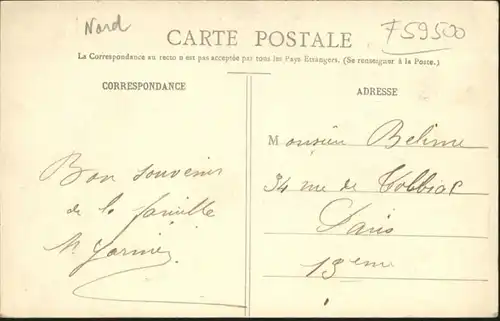 Nord
F59500
CARTE POSTALE
La Correspondance au recto n'est pas acceptée par tous les Pays Etrangers. (Se renseigner à la Poste.)
CORRESPONDANCE
ADRESSE
Bon souvenir
de la famille
Monsieur Belime
34 rue de Tolbiac
Paris
13eme